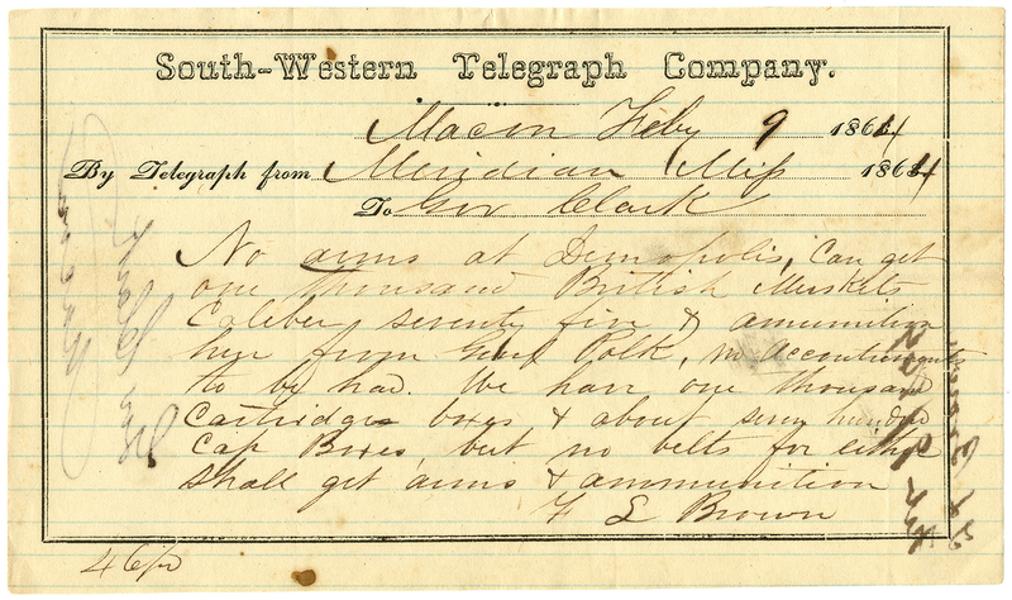 South-Western Telegraph Company.
Macon Feby 9 1864
By Telegraph from Meridian Miss 1864
To Gov Clark
No arms at Demopolis, Can get
one thousand British Muskets
Caleber seventy five & amunition
here from Genl Polk, no Accoutrements
to be had. We have one thousand
Cartridge boxes & about seven hundred
Cap Boxes, but no belts for either
Shall get arms & ammunition
F L Brown
46 pd